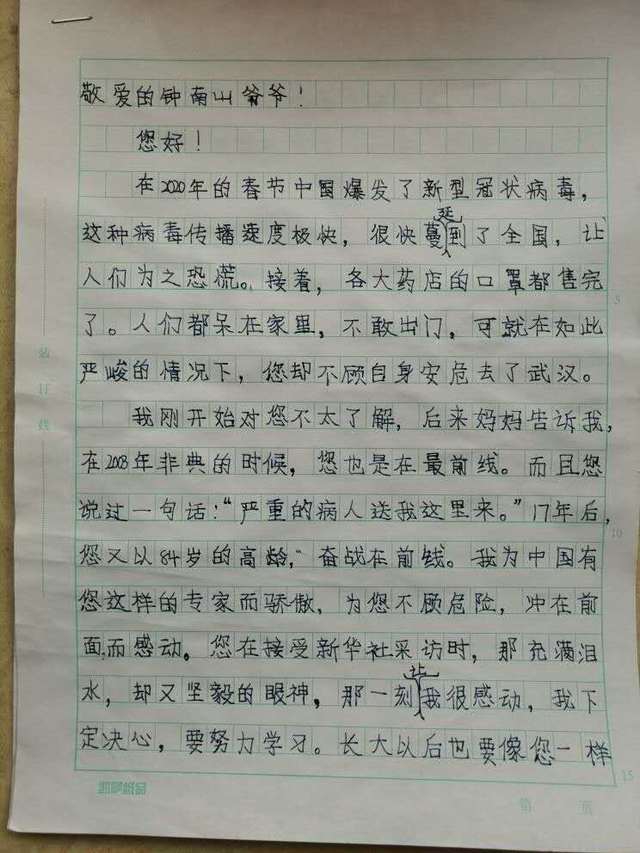 敬爱的钟南山爷爷！
您好！
在2020年的春节中国爆发了新型冠状病毒，
这种病毒传播速度极快，很快蔓延到了全国，让
人们为之恐慌。接着，各大药店的口罩都售完
5
了。人们都呆在家里，不敢出门，可就在如此
严峻的情况下，您却不顾自身安危去了武汉。
我刚开始对您不太了解，后来妈妈告诉我，
在2003年非典的时候，您也是在最前线。而且您
说过一句话：“严重的病人送我这里来。”17年后，
10
您又以84岁的高龄，奋战在前线。我为中国有
您这样的专家而骄傲，为您不顾危险，冲在前
面而感动。您在接受新华社采访时，那充满泪
水，却又坚毅的眼神，那一刻让我很感动，我下
定决心，要努力学习。长大以后也要像您一样
15
装订线
第 页